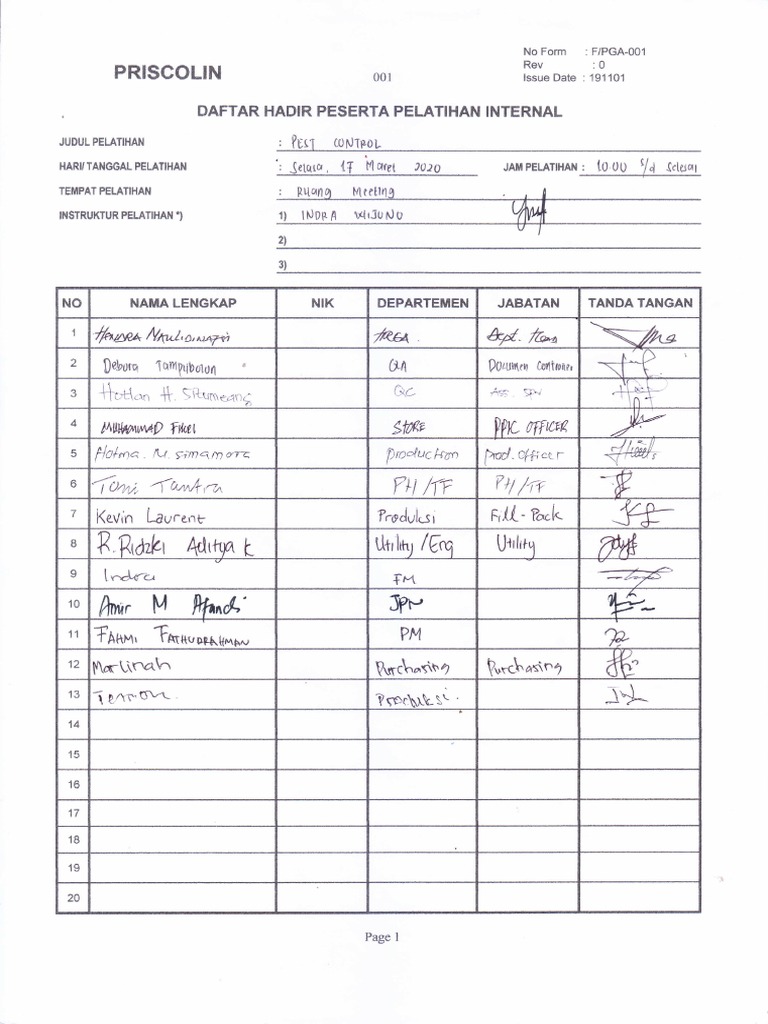 No Form : F/PGA-001
PRISCOLIN 001 Rev : 0
Issue Date : 191101
DAFTAR HADIR PESERTA PELATIHAN INTERNAL
JUDUL PELATIHAN : PEST CONTROL
HARI/TANGGAL PELATIHAN : Selasa, 17 Maret 2020 JAM PELATIHAN : 10.00 s/d Selesai
TEMPAT PELATIHAN : Ruang Meeting
INSTRUKTUR PELATIHAN *) 1) INDRA WIJUNO
2)
3)
NO NAMA LENGKAP NIK DEPARTEMEN JABATAN TANDA TANGAN
1 HENDRA HRGA Dept. Head
2 Debora Tampubolon QA Documen Controller
3 Hotlan H. QC Ass. SPV
4 MUHAMMAD STORE PPIC OFFICER
5 Hotma. M. Simamora production prod. officer
6 Toni Tantra PH/TF PH/TF
7 Kevin Laurent Produksi Fill-Pack
8 R. Ridzki Aditya K Utility/Eng Utility
9 Indra FM
10 Amir M Afandi JPN
11 FAHMI FATHURRAHMAN PM
12 Marlinah Purchasing Purchasing
13 Produksi.
14
15
16
17
18
19
20
Page 1